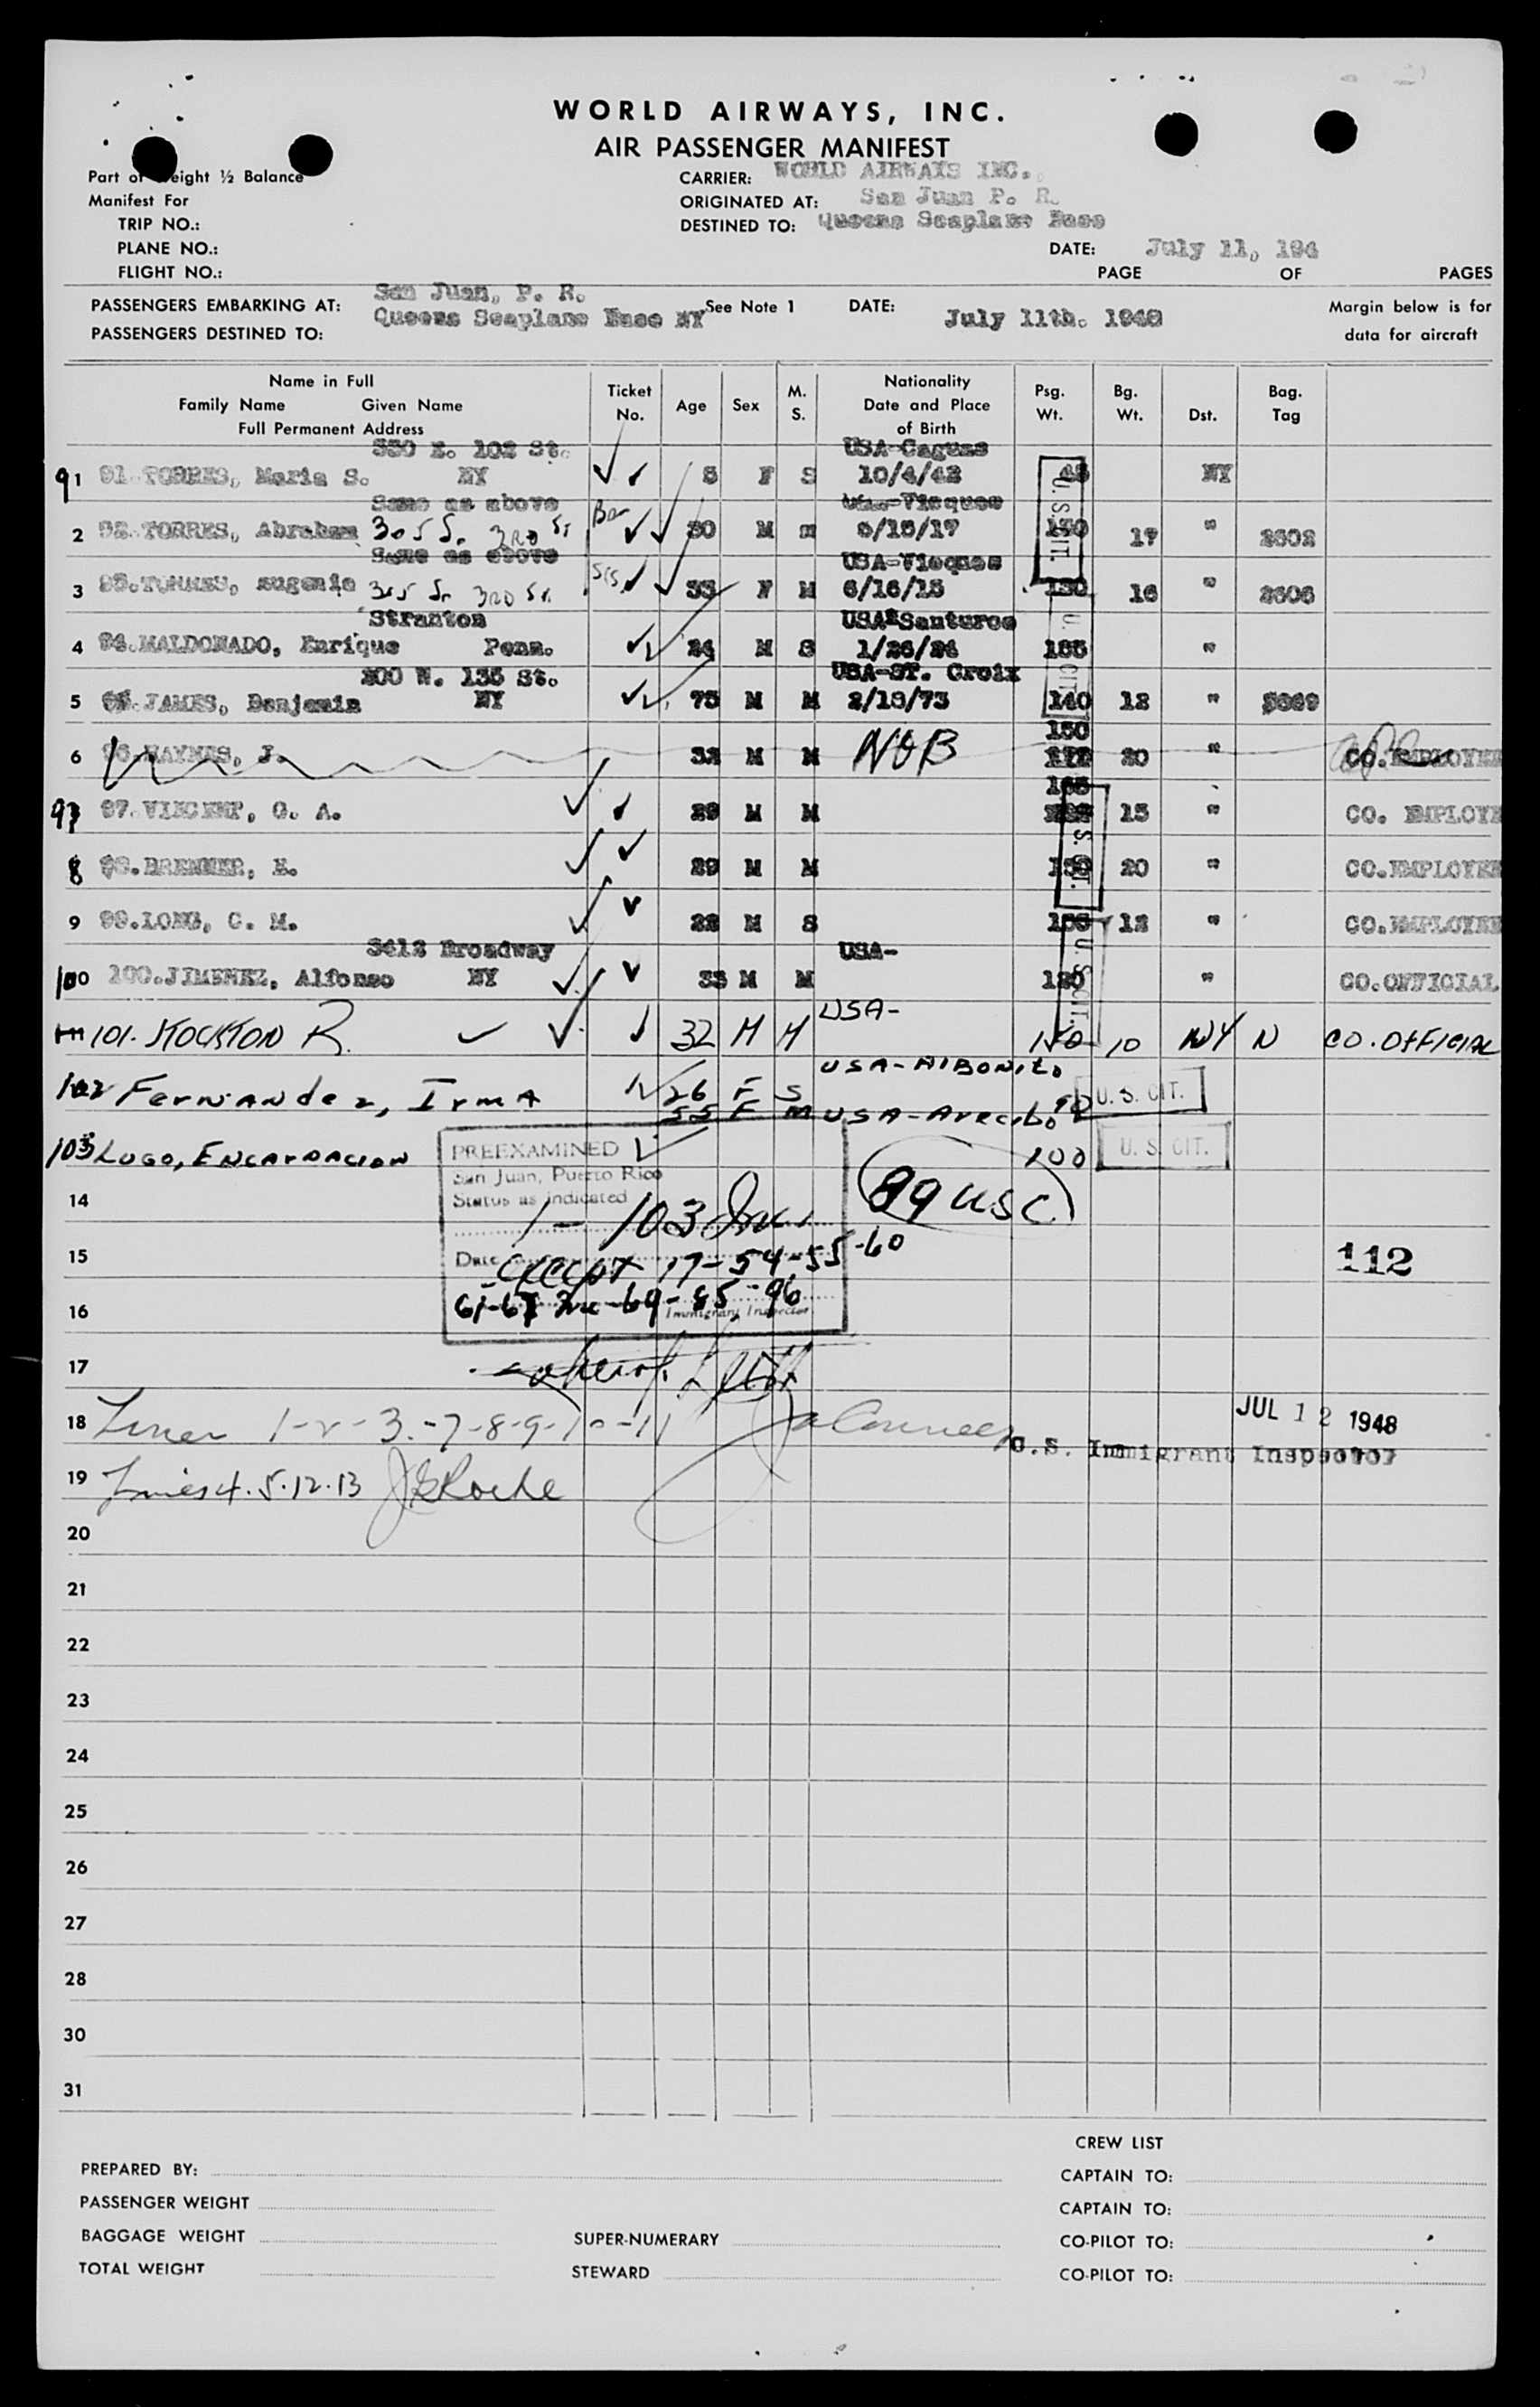 WORLD AIRWAYS, INC.
AIR PASSENGER MANIFEST
Part of Weight ½ Balance
Manifest For
TRIP NO.:
PLANE NO.:
FLIGHT NO.:
CARRIER: WORLD AIRWAYS INC.
ORIGINATED AT: San Juan P. R.
DESTINED TO: Queens Seaplane Base
DATE: July 11, 194
PAGE OF PAGES
PASSENGERS EMBARKING AT: San Juan, P. R.
PASSENGERS DESTINED TO: Queens Seaplane Base NY
See Note 1
DATE: July 11th. 1948
Margin below is for
data for aircraft
Name in Full
Family Name Given Name
Full Permanent Address
Ticket No.
Age
Sex
M. S.
Nationality
Date and Place
of Birth
Psg. Wt.
Bg. Wt.
Dst.
Bag. Tag
330 E. 102 St. USA-Caguas
91 91.TORRES, Maria S. NY 5 F S 10/4/42 NY
Same as above Vieques
2 92.TORRES, Abraham 305 S. 3RD St 30 M m /17 17 " 2602
Same as above USA-Vieques
3 93.TORRES, Eugenia 305 S. 3RD St. 33 F M 6/16/15 130 16 " 2606
Stranton USA-Santurce
4 94.MALDONADO, Enrique Penn. 24 M S 1/26/24 "
200 W. 135 St. USA-ST. Croix
5 95.JAMES, Benjamin NY 75 M M 140 12 "
150
6 96.HAYNES, J. 32 M M NOB 20 " CO.EMPLOYEE
97 97.VINCENT, G. A. 29 M M 15 " CO. EMPLOYE
8 98.BRENNER, E. 29 M M 20 " CO.EMPLOYEE
9 99.LONG, C. M. M S 12 " CO.EMPLOYEE
3412 Broadway USA-
100 100.JIMENEZ, Alfonso NY 33 M M " CO.OFFICIAL
101. STOCKTON R. 32 M M USA- 10 NY N CO. OFFICIAL
102 Fernandez, Irma 26 F S USA-AIBONITO 90 U. S. CIT.
103 Lugo, Encarnacion 55 F M USA-Arecibo 100 U. S. CIT.
U. S. CIT.
U. S. CIT.
U. S. CIT.
U. S. CIT.
PREEXAMINED
San Juan, Puerto Rico
Status as indicated
1 - 103 Inc.
Date
except 17-54-55-60
61-67 Inc-69-85-96
Immigrant Inspector
89 USC
112
14
15
16
17
18 Lines 1-2-3-7-8-9-10-11
JUL 12 1948
U.S. Immigrant Inspector
19 Lines 4.5.12.13 J Roche
20
21
22
23
24
25
26
27
28
30
31
CREW LIST
PREPARED BY:
PASSENGER WEIGHT
BAGGAGE WEIGHT
TOTAL WEIGHT
SUPER-NUMERARY
STEWARD
CAPTAIN TO:
CAPTAIN TO:
CO-PILOT TO:
CO-PILOT TO: